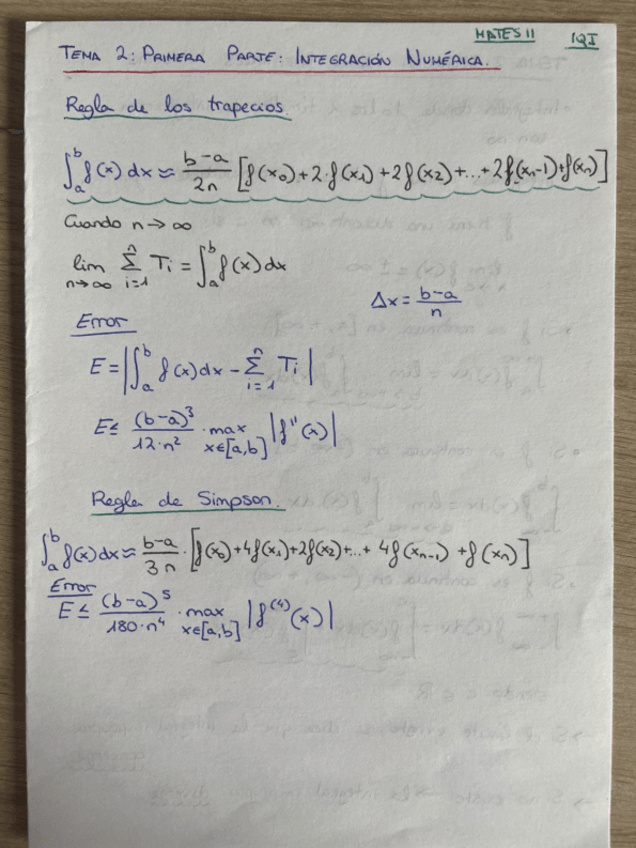 MATES II IQI
TEMA 2: PRIMERA PARTE: INTEGRACIÓN NUMÉRICA.
Regla de los trapecios.
∫_a^b f(x) dx ≈ (b-a)/(2n) [f(x₀)+2·f(x₁)+2f(x₂)+...+2f(xₙ₋₁)+f(xₙ)]
Cuando n→∞
lim_{n→∞} Σ_{i=1}^n Tᵢ = ∫_a^b f(x) dx
Δx = (b-a)/n
Error
E = |∫_a^b f(x) dx - Σ_{i=1}^n Tᵢ|
E ≤ (b-a)³/(12·n²) · max_{x∈[a,b]} |f''(x)|
Regla de Simpson.
∫_a^b f(x) dx ≈ (b-a)/(3n) · [f(x₀)+4f(x₁)+2f(x₂)+...+ 4f(xₙ₋₁) + f(xₙ)]
Error
E ≤ (b-a)⁵/(180·n⁴) · max_{x∈[a,b]} |f⁽⁴⁾(x)|